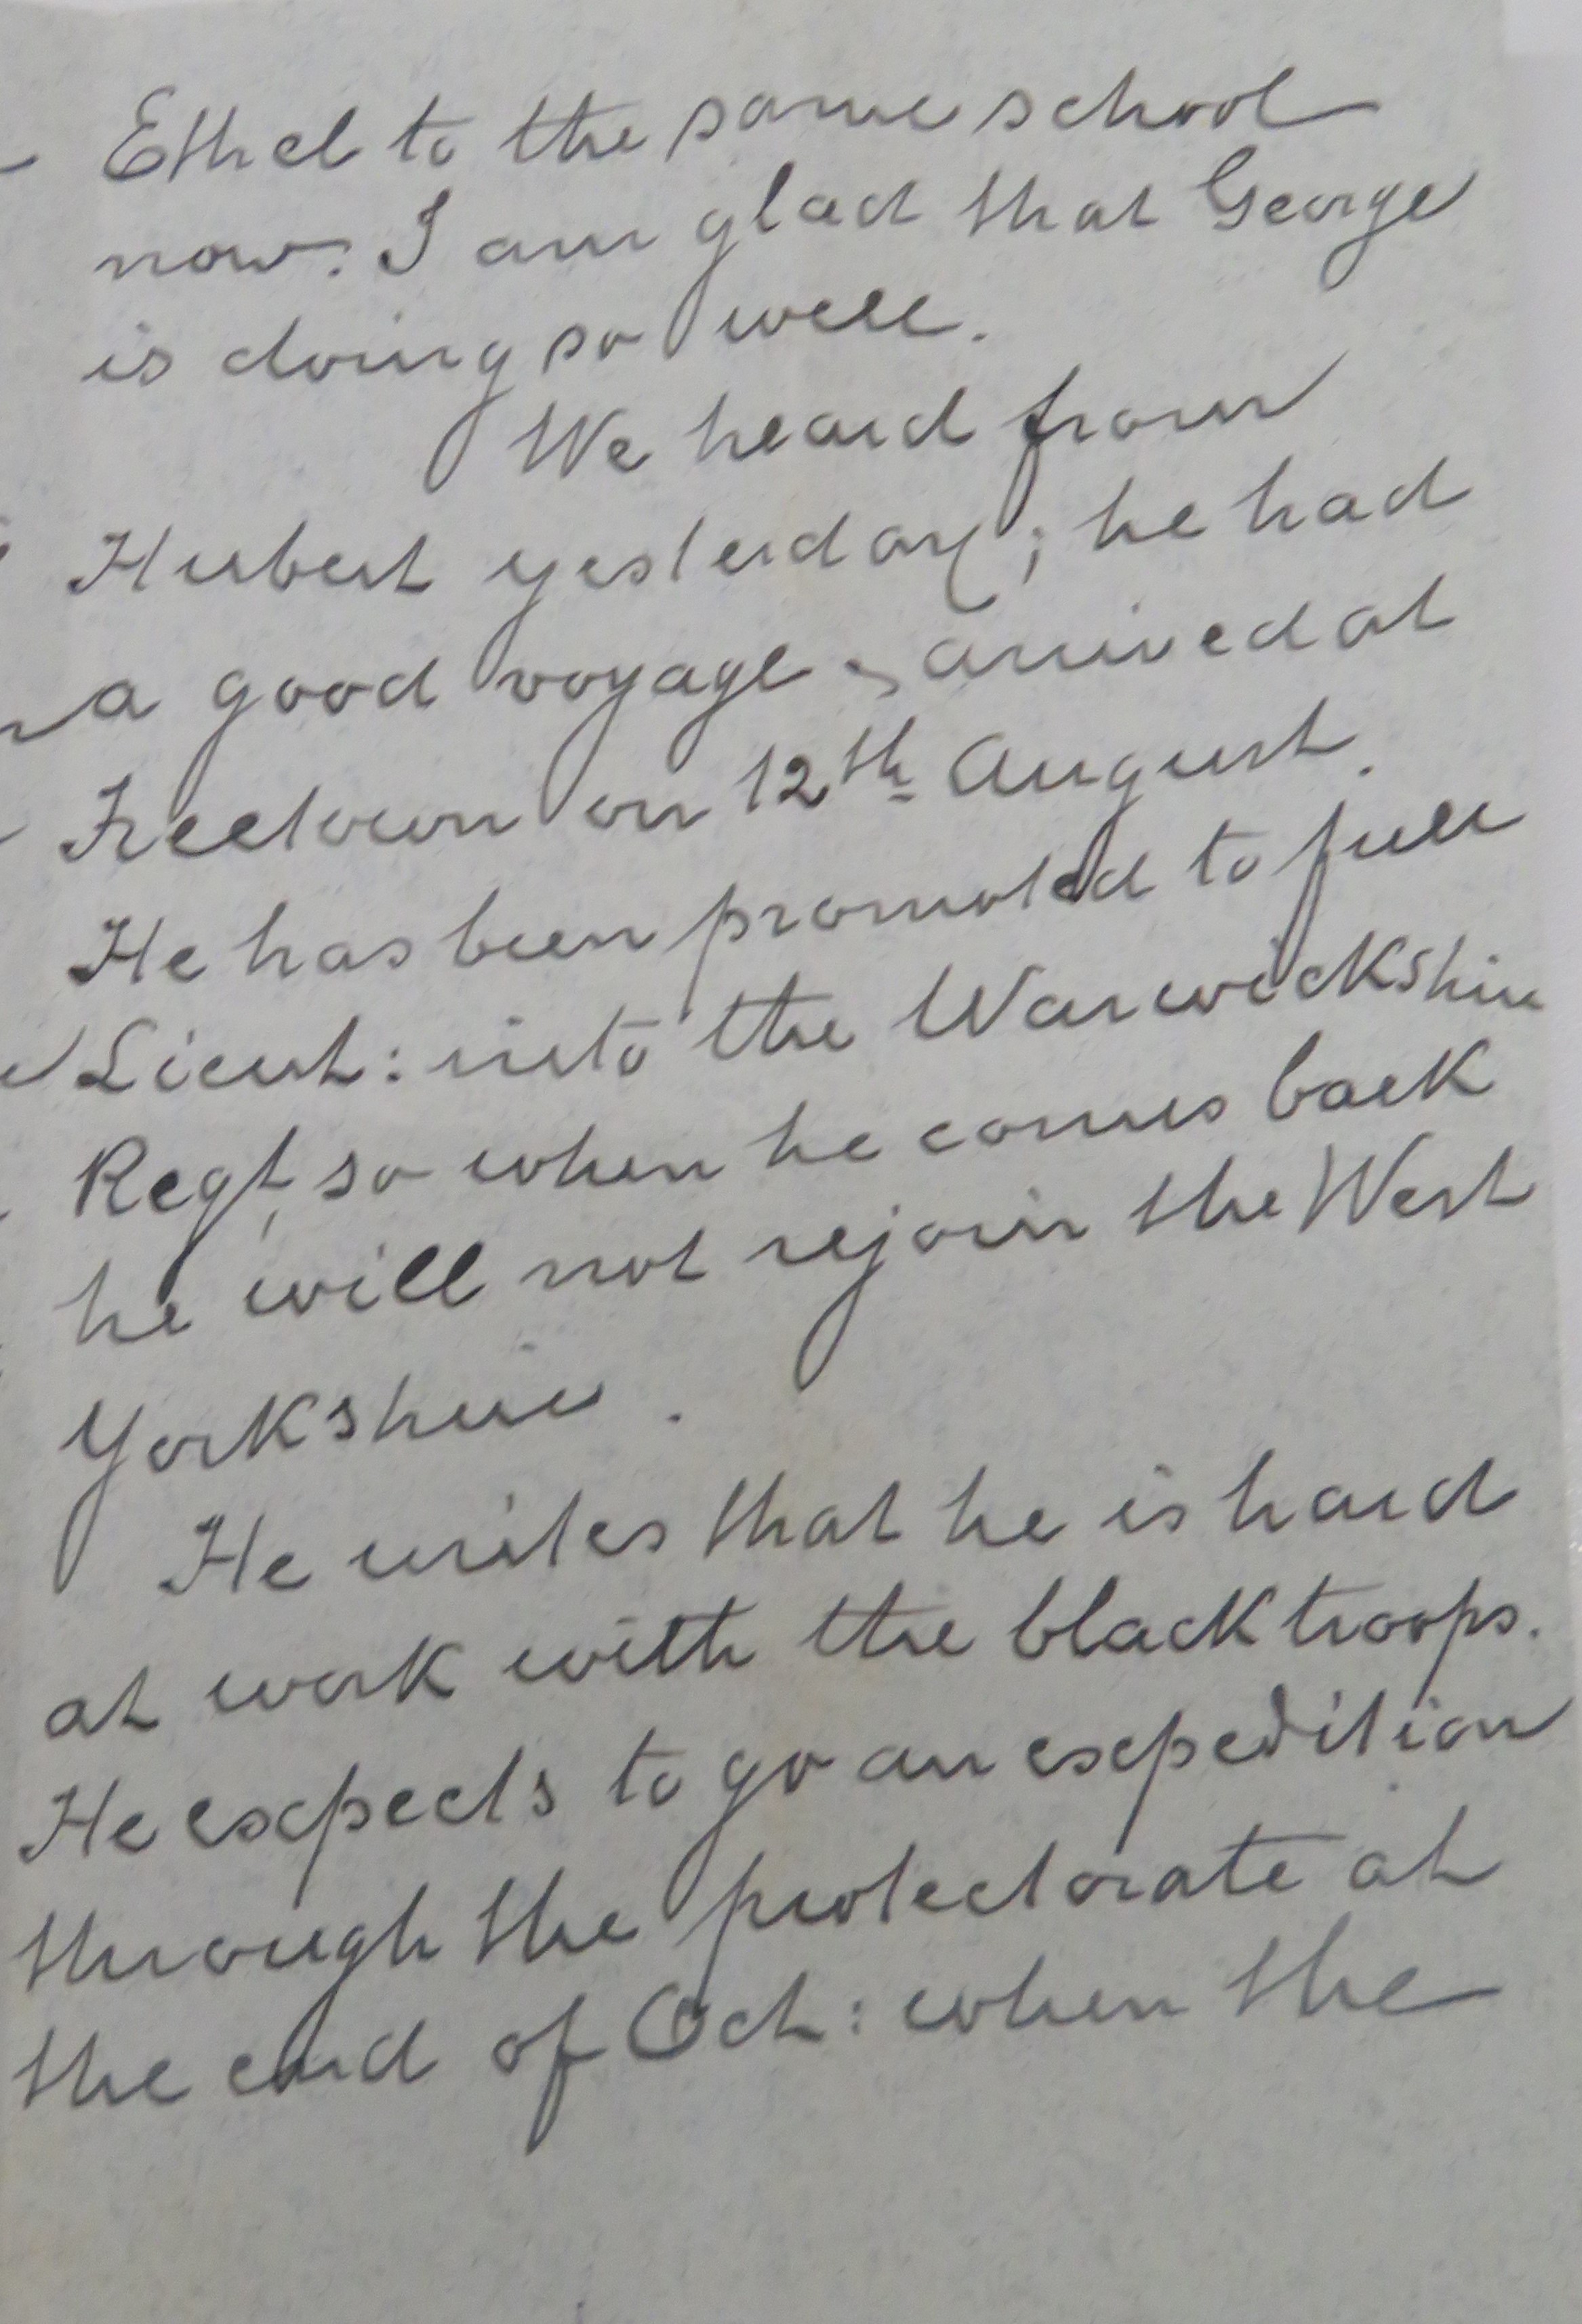 Ethel to the same school
now. I am glad that George
is doing so well.
We heard from
Hubert yesterday; he had
a good voyage & arrived at
Freetown on 12th August.
He has been promoted to full
Lieut: into the Warwickshire
Regt, so when he comes back
he will not rejoin the West
Yorkshire.
He writes that he is hard
at work with the black troops.
He expects to go an expedition
through the protectorate at
the end of Oct: when the